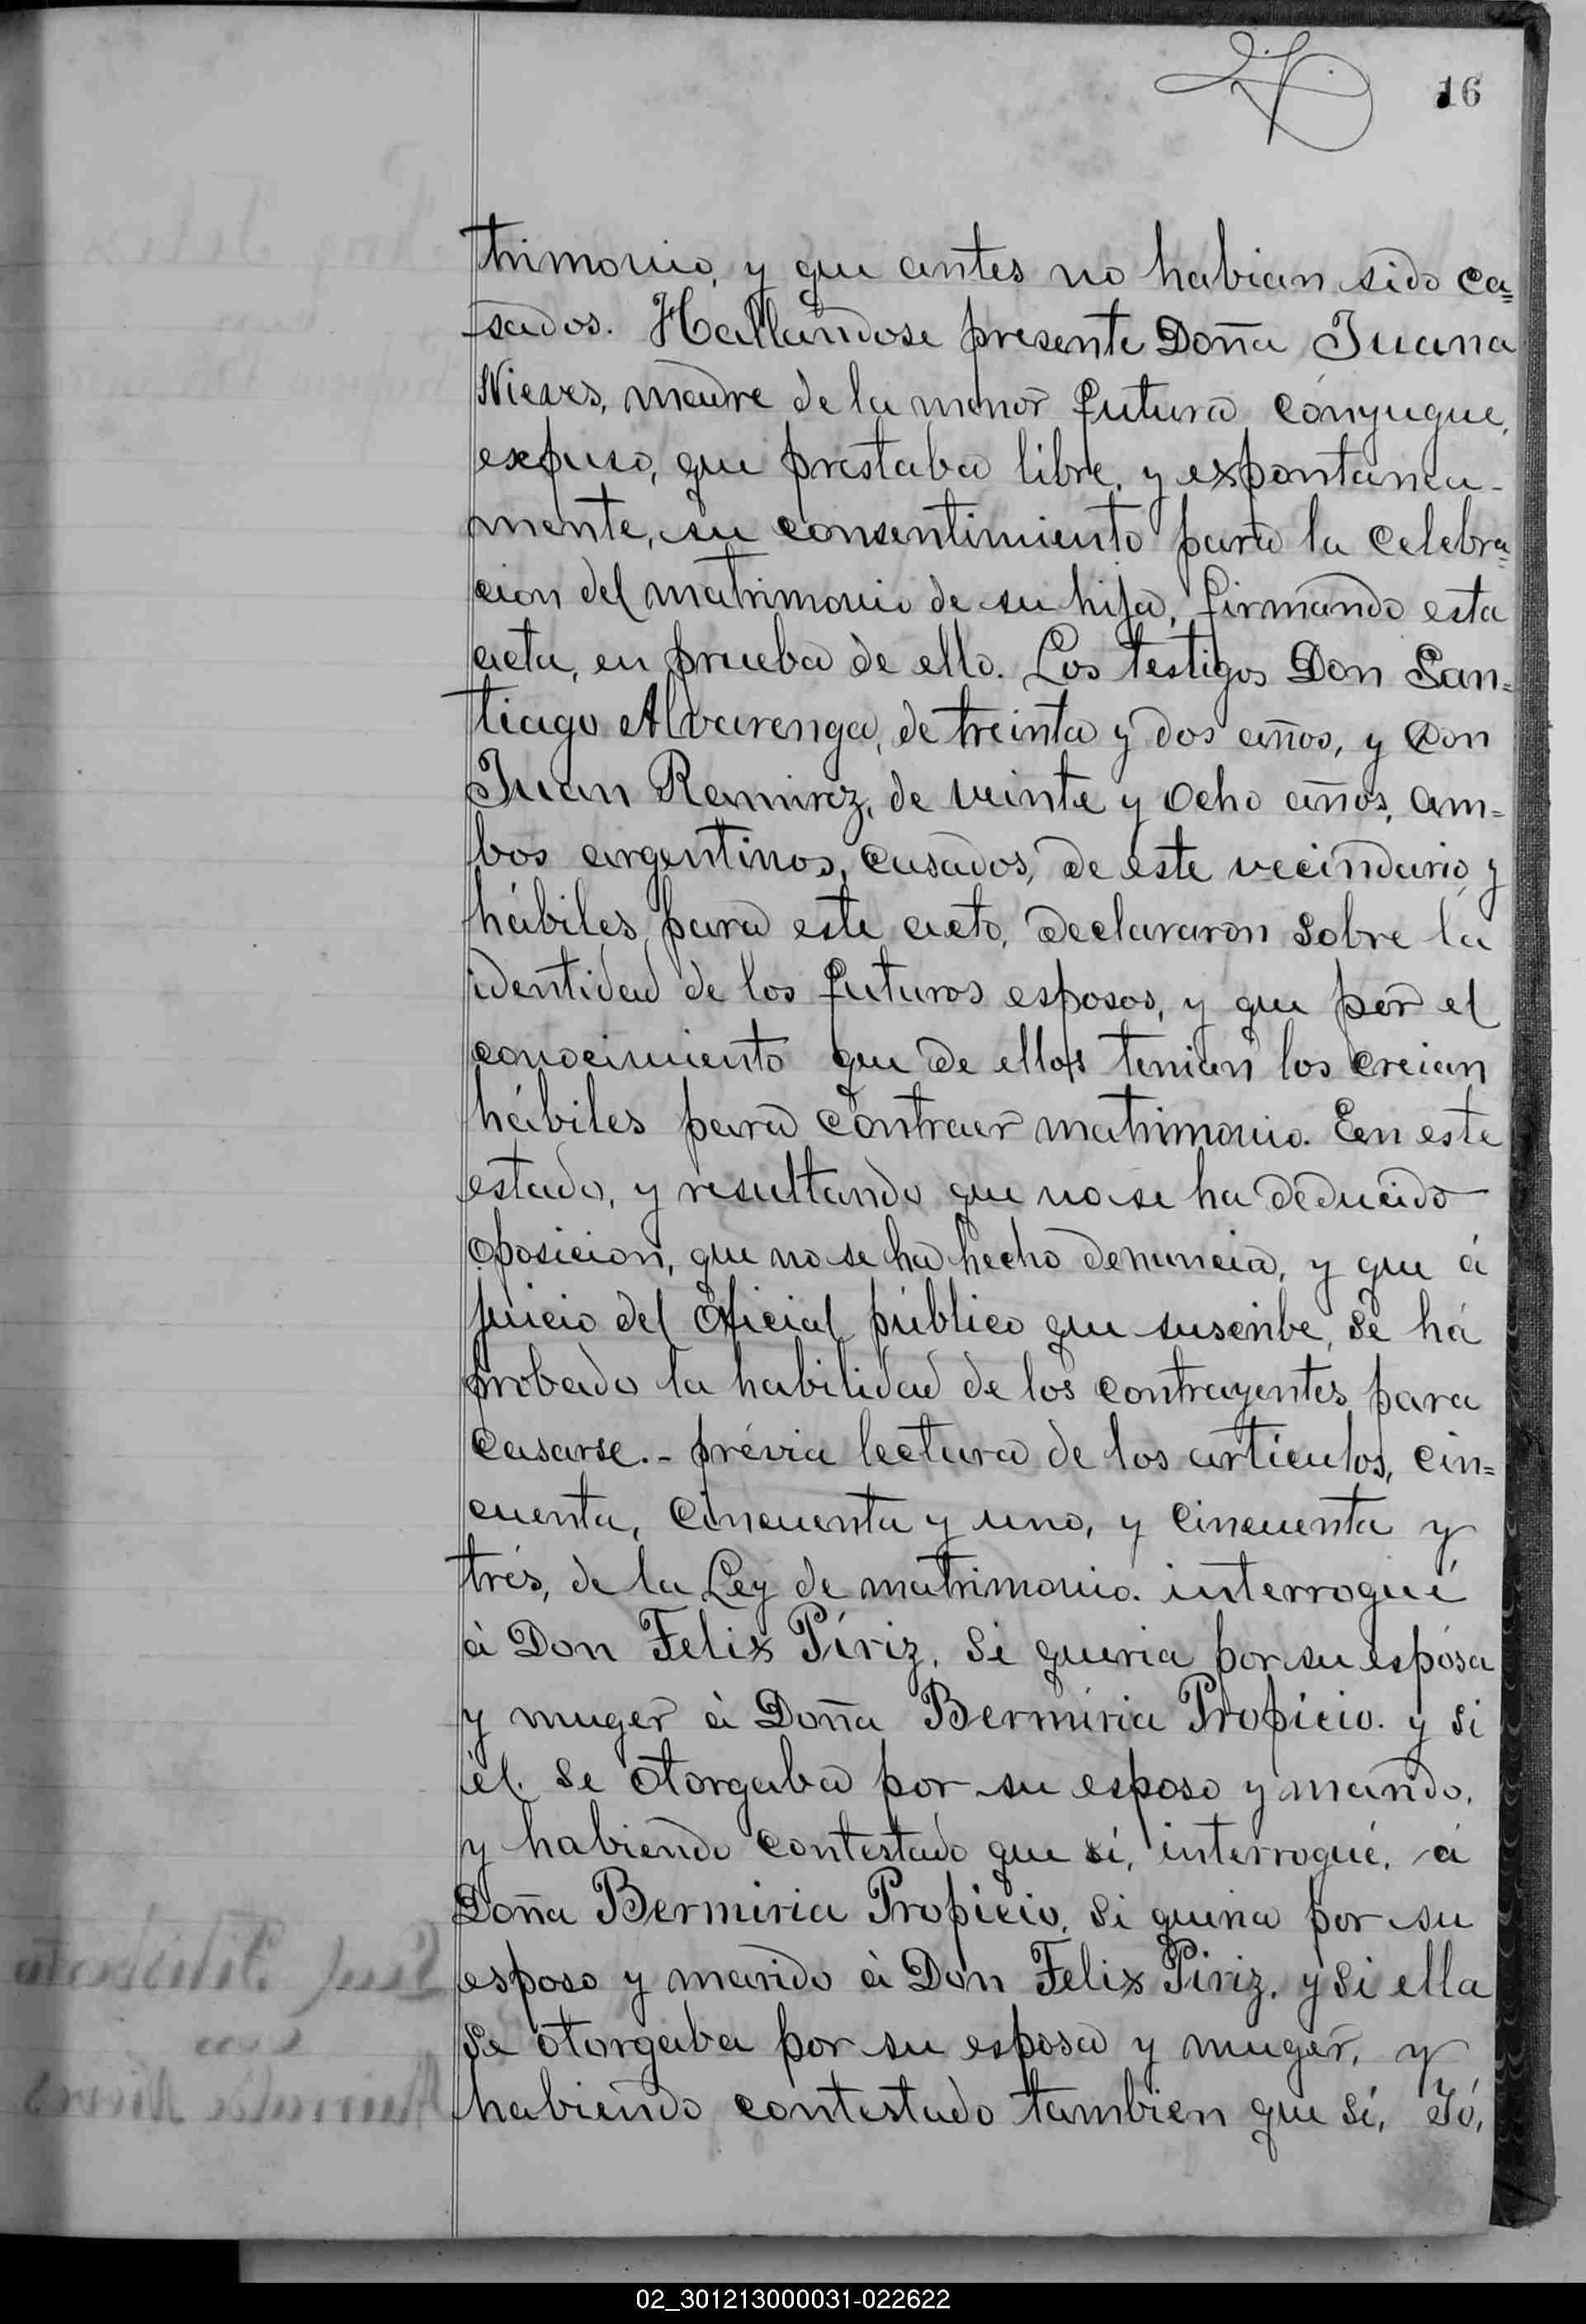 16
trimonio, y que antes no habian sido ca=
sados. Hallandose presente Doña Juana
Nieves, madre de la menor futura cónyugue,
expuso, que prestaba libre, y expontanea-
mente, su consentimiento para la celebra=
cion del matrimonio de su hija, firmando esta
acta, en prueba de ello. Los testigos Don San=
tiago Alvarenga, de treinta y dos años, y Don
Juan Ramirez, de veinte y ocho años, am=
bos argentinos, casados, de este vecindario, y
hábiles para este acto, declararon sobre la
identidad de los futuros esposos, y que por el
conocimiento que de ellos tenian los creian
hábiles para contraer matrimonio. En este
estado, y resultando que no se ha deducido
oposicion, que no se ha hecho denuncia, y que á
juicio del Oficial público que suscribe, se há
probado la habilidad de los contrayentes para
casarse.- prévia lectura de los articulos, cin=
cuenta, cincuenta y uno, y cincuenta y
trés, de la Ley de matrimonio. interrogué
á Don Felix Píriz, si queria por su espósa
y muger á Doña Bermiria Propicio. y si
él se otorgaba por su esposo y marido,
y habiendo contestado que sí, interrogué, á
Doña Bermiria Propicio, si queria por su
esposo y marido á Don Felix Píriz, y si ella
se otorgaba por su esposa y muger, y
habiendo contestado tambien que sí, Yó,
02_301213000031-022622